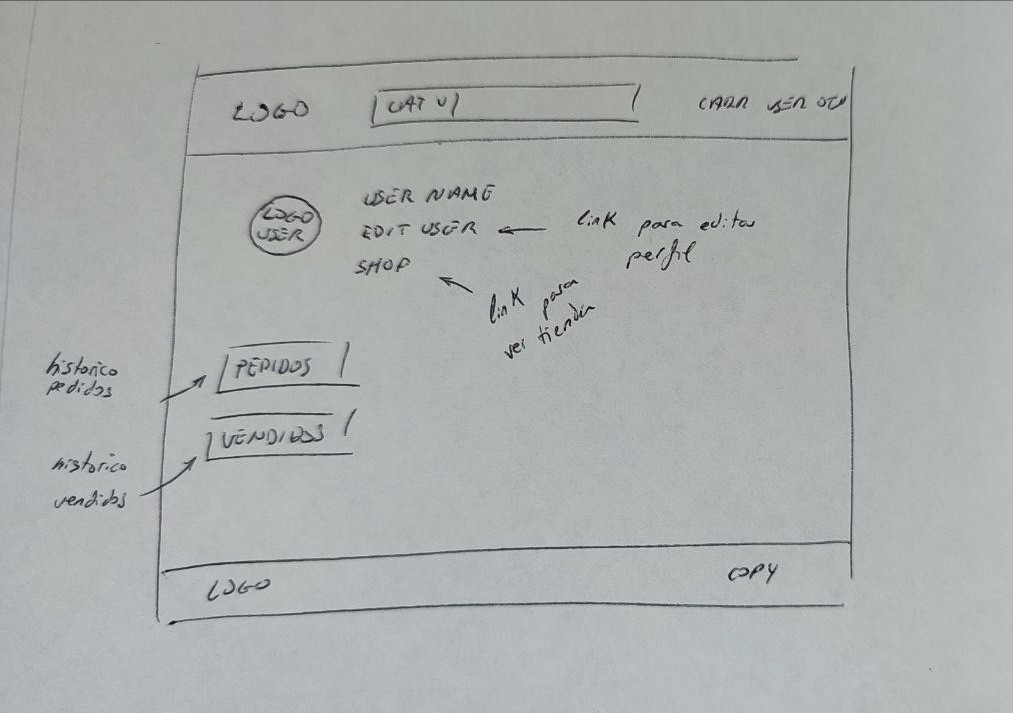 LOGO
CAT V
CARR USER
LOGO
USER
USER NAME
EDIT USER
SHOP
link para editar
perfil
link para
ver tienda
historico
pedidos
PEDIDOS
VENDIDOS
historico
vendidos
LOGO
COPY